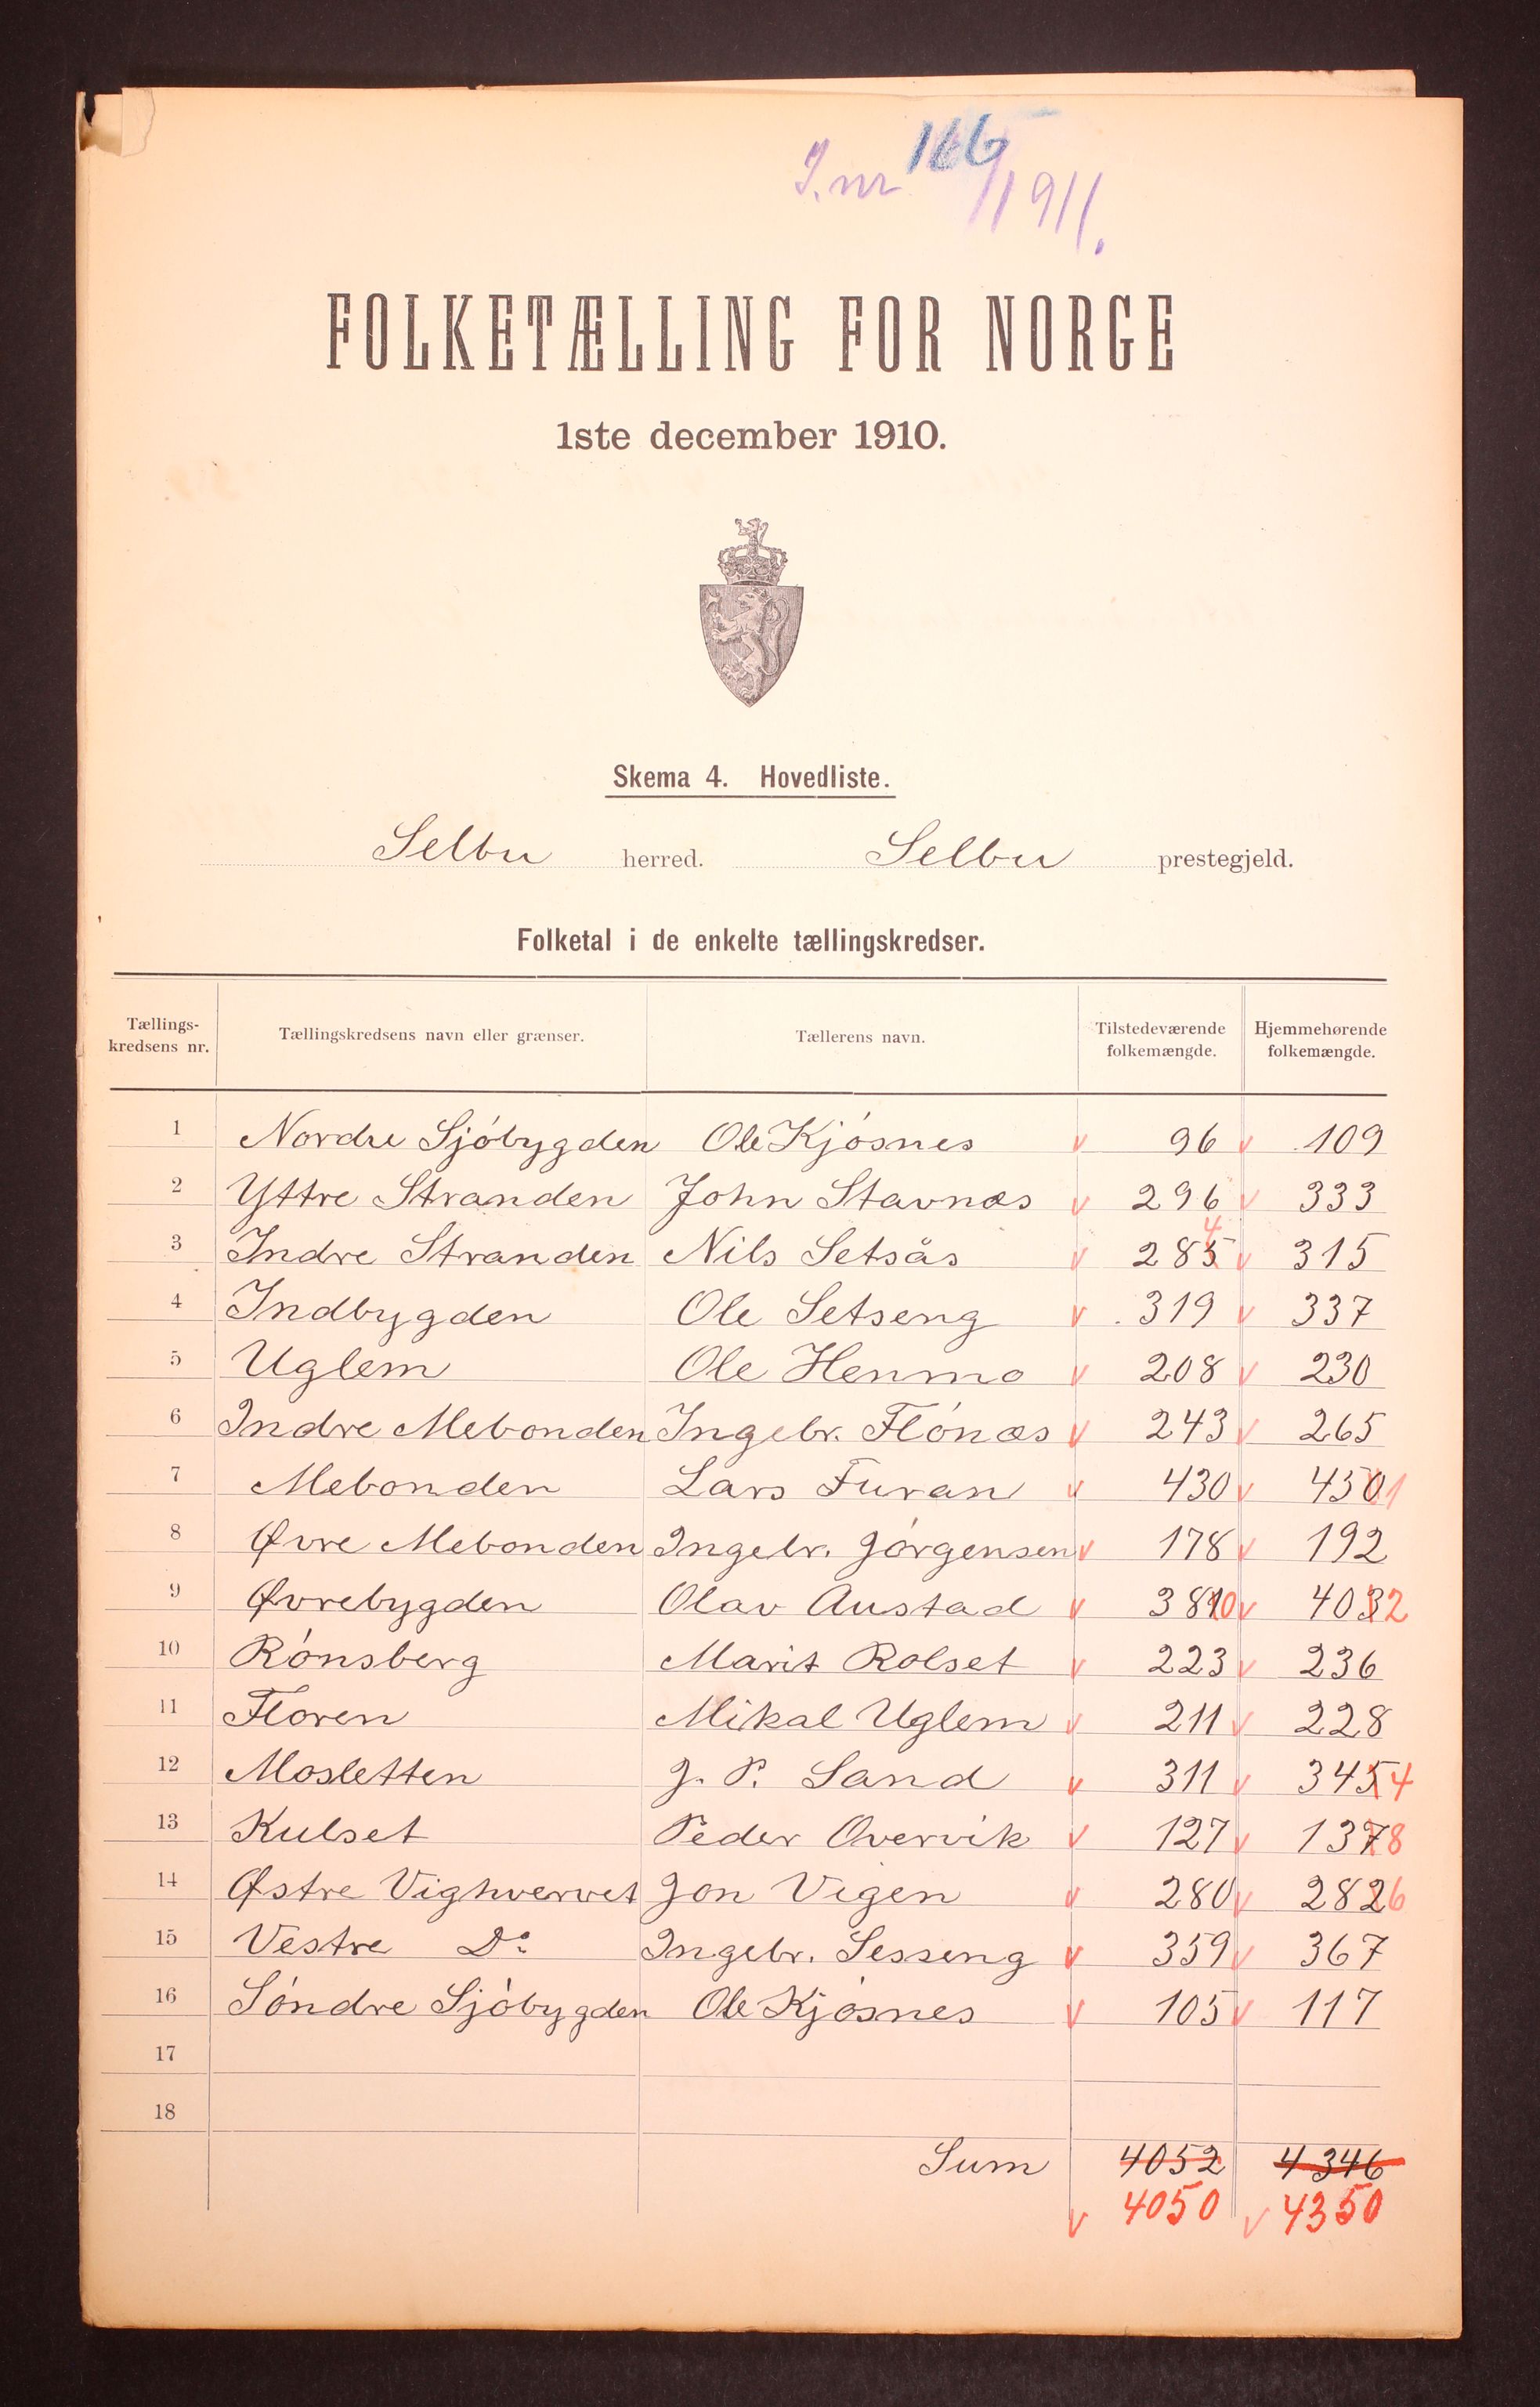 J.nr 166/1911.
FOLKETÆLLING FOR NORGE
1ste december 1910.
Skema 4. Hovedliste.
Selbu herred. Selbu prestegjeld.
Folketal i de enkelte tællingskredser.
Tællings-kredsens nr. Tællingskredsens navn eller grænser. Tællerens navn. Tilstedeværende folkemængde. Hjemmehørende folkemængde.
1 Nordre Sjöbygden Ole Kjösnes v 96 v 109
2 Yttre Stranden John Stavnæs v 296 v 333
3 Indre Stranden Nils Setsås v 285 4 v 315
4 Indbygden Ole Setseng v 319 v 337
5 Uglem Ole Henmo v 208 v 230
6 Indre Mebonden Ingebr. Flönæs v 243 v 265
7 Mebonden Lars Furan v 430 v 450 1
8 Øvre Mebonden Ingebr. Jörgensen v 178 v 192
9 Øvrebygden Olav Austad v 381 0 v 403 2
10 Rönsberg Marit Rolset v 223 v 236
11 Floren Mikal Uglem v 211 v 228
12 Mosletten J. P. Sand v 311 v 345 4
13 Kulset Peder Overvik v 127 v 137 8
14 Østre Vighvervet Jon Vigen v 280 v 282 6
15 Vestre Do Ingebr. Sesseng v 359 v 367
16 Söndre Sjöbygden Ole Kjösnes v 105 v 117
17
18
Sum 4052 4346
v 4050 v 4350